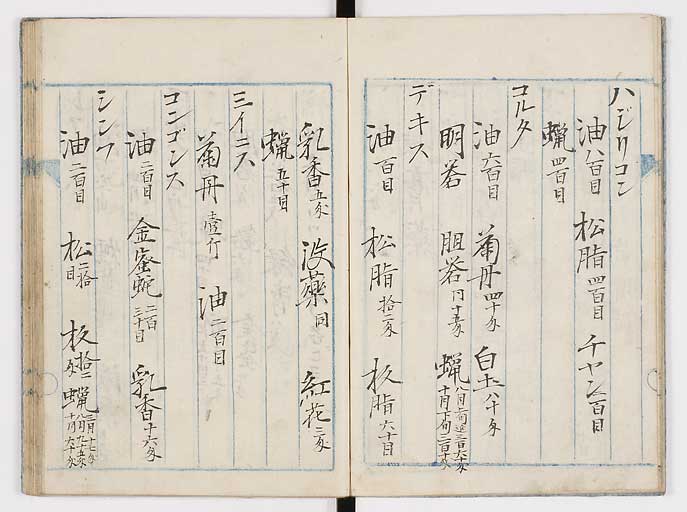 ハジリコン
油八百目 松脂四百目 チヤン二百目
蝋四百目
コルタ
油六百目 菊丹四十匁 白土八十匁
明礬 胆礬同十五匁 蝋
デキス
油百目 松脂拾二匁 杦脂六十目
乳香五匁 没薬同 紅花三匁
蝋五十目
ミイニス
菊丹壹斤 油二百目
コンゴンス
油二百目 金蜜蛇二百三十目 乳香十六匁
シンフ
油二百目 松二拾目 杦拾二匁 蝋